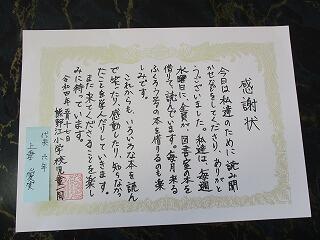 感謝状
今日は私達のために読み聞
かせなどをしてくださり、ありがと
うございました。私達は、毎週
水曜日に、全員が、図書室の本を
借りて読んでいます。毎月来る
ふくろう号の本を借りるのも楽
しみです。
これからも、いろいろな本を読ん
で笑ったり、感動したり、知らなかっ
たことを学んだりしていきます。
また来てくださることを楽し
みに待っています。
令和四年 月十七日
熊野江小学校児童一同
代表 六年